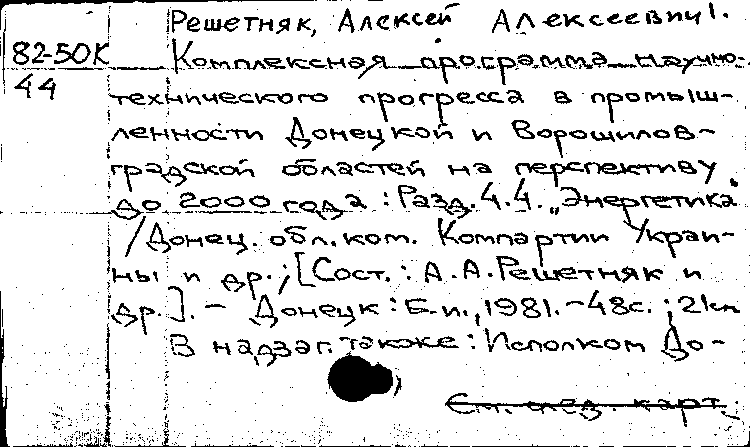 Решетняк, Алексей Алексеевич.
82-50К Комплексная программа научно-
44
технического прогресса в промыш-
ленности Донецкой и Ворошилов-
градской областей на перспективу
до 2000 года : Разд. 4.4. „Энергетика"
/Донец. обл. ком. Компартии Украи-
ны и др.; [Сост.: А.А. Решетняк и
др.]. - Донецк : Б.и., 1981. - 48с. ; 21см
В надзаг. также : Исполком До-
См. след. карт.